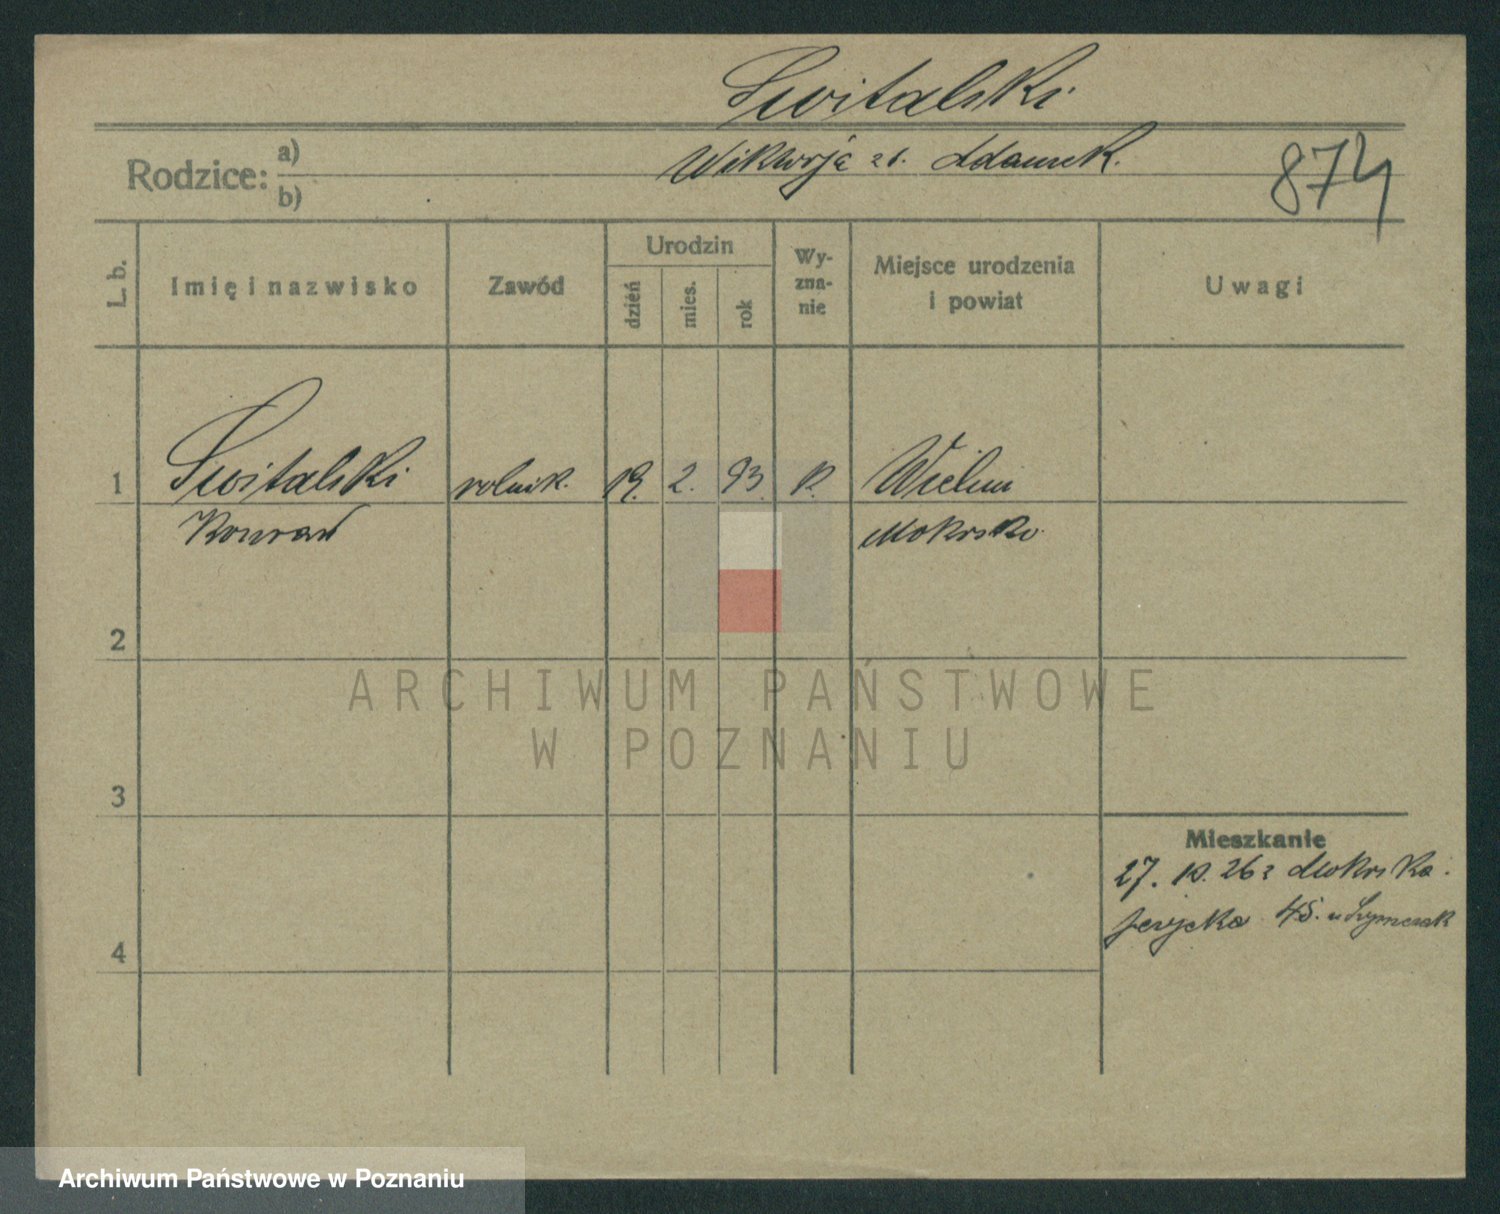 Switalski
Rodzice: a) Wiktorja z d. Adamek.
b)
874
L. b.
Imię i nazwisko
Zawód
Urodzin
dzień
mies.
rok
Wy-
zna-
nie
Miejsce urodzenia
i powiat
Uwagi
1 Switalski rolnik. 19. 2. 93. Wieluń
Konrad Mokrsko
2
ARCHIWUM PAŃSTWOWE
W POZNANIU
3
Mieszkanie
27. 10. 26 z Mokrska.
4 Jeżycka 45. u Szymczak
Archiwum Państwowe w Poznaniu